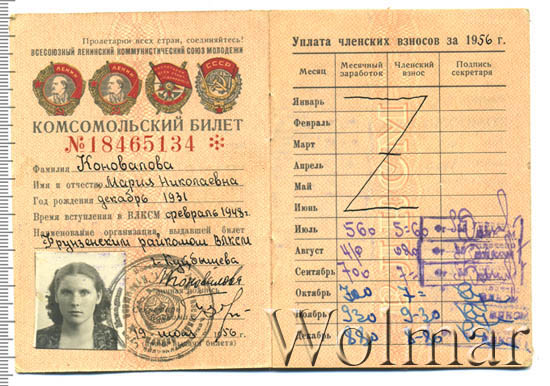 Пролетарии всех стран, соединяйтесь!
ВСЕСОЮЗНЫЙ ЛЕНИНСКИЙ КОММУНИСТИЧЕСКИЙ СОЮЗ МОЛОДЕЖИ
ЛЕНИН
ЛЕНИН
СССР
КОМСОМОЛЬСКИЙ БИЛЕТ
№18465134
Фамилия Коновалова
Имя и отчество Мария Николаевна
Год рождения декабрь 1931
Время вступления в ВЛКСМ февраль 1948г.
Наименование организации, выдавшей билет
Фрунзенским райкомом ВЛКСМ
г. Куйбышева
Коновалова
личная подпись
19 1956 г.
Уплата членских взносов за 1956 г.
Месяц Месячный заработок Членский взнос Подпись секретаря
Январь
Февраль
Март
Апрель
Май
Июнь
Июль 560 5-60
Август
Сентябрь 700 7=
Октябрь 700 7=
Ноябрь 930 9-30
Декабрь 880 8-80
Wolmar